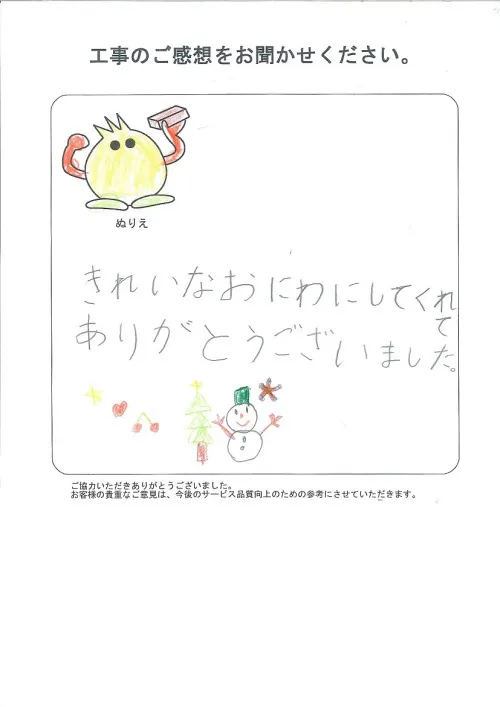 工事のご感想をお聞かせください。
ぬりえ
きれいなおにわにしてくれて
ありがとうございました。
ご協力いただきありがとうございました。
お客様の貴重なご意見は、今後のサービス品質向上のための参考にさせていただきます。